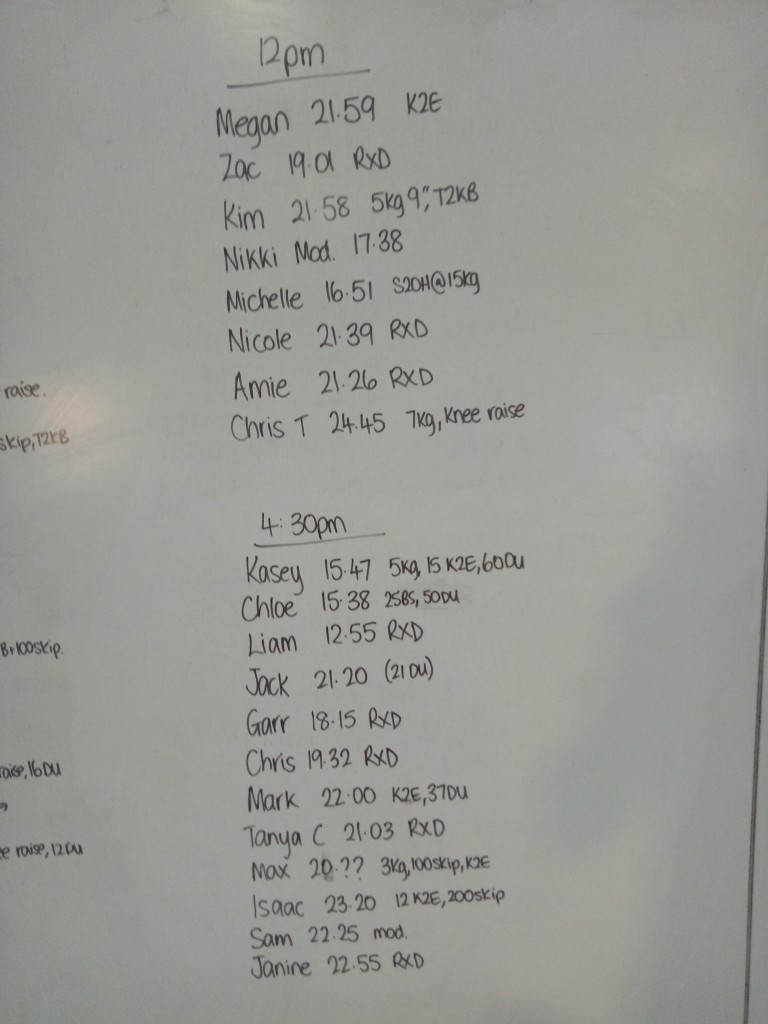 12pm
Megan 21.59 K2E
Zac 19.01 RXD
Kim 21.58 5kg 9", T2KB
Nikki Mod. 17.38
Michelle 16.51 S2OH@15kg
Nicole 21.39 RXD
Amie 21.26 RXD
raise.
Chris T 24.45 7kg, Knee raise
skip, T2KB
4:30pm
Kasey 15.47 5kg, 15 K2E, 60DU
Chloe 15.38 25BS, 50DU
Liam 12.55 RXD
B+100skip.
Jack 21.20 (21DU)
Garr 18.15 RXD
Chris 19.32 RXD
raise, 16DU
Mark 22.00 K2E, 37DU
Tanya C 21.03 RXD
ee raise, 12DU
Max 20.?? 3kg, 100skip, K2E
Isaac 23.20 12 K2E, 200skip
Sam 22.25 mod.
Janine 22.55 RXD